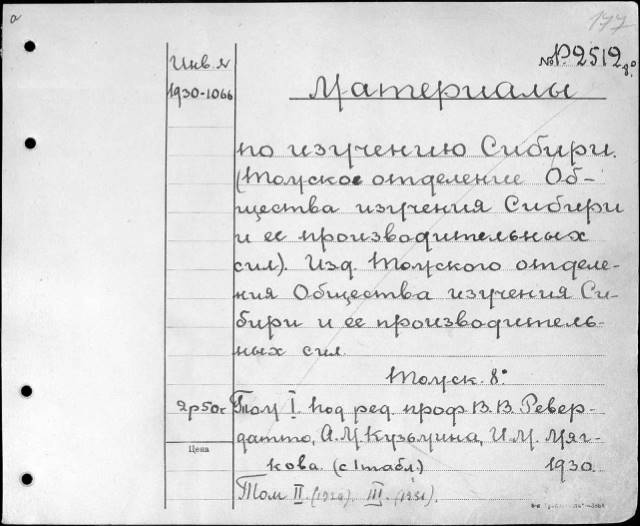 a
177
№ Р. 2512
8°
Инв. №
1930-1066
Материалы
по изучению Сибири.
(Томское отделение Об-
щества изучения Сибири
и ее производительных
сил). Изд. Томского отделе-
ния Общества изучения Си-
бири и ее производитель-
ных сил.
Томск. 8°
2р50к Том I. Под ред. проф В.В. Ревер-
датто, А.М. Кузьмина, И.М. Мяг-
Цена
кова. (с 1 табл.) 1930.
Том II. III. (1931).